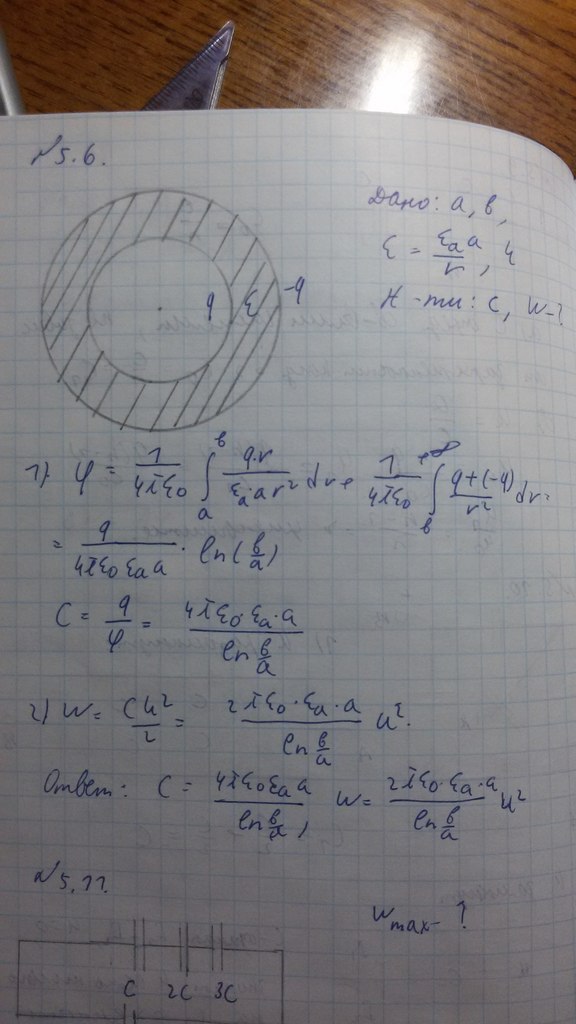 №5.6.
Дано: a, в,
ε = εₐa/r, u
Н-ти: C, W-?
q ε -q
1) φ = 1/4πε₀ ∫ₐᵇ q·r/εₐ·a r² dr + 1/4πε₀ ∫ᵇ^+∞ q+(-q)/r² dr =
= q/4πε₀εₐa · ln(в/a)
C = q/φ = 4πε₀·εₐ·a/ln в/a
2) W = Cu²/2 = 2πε₀·εₐ·a/ln в/a u².
Ответ: C = 4πε₀εₐa/ln в/a, W = 2πε₀·εₐ·a/ln в/a u²
№5.11.
Wmax - ?
C 2C 3C